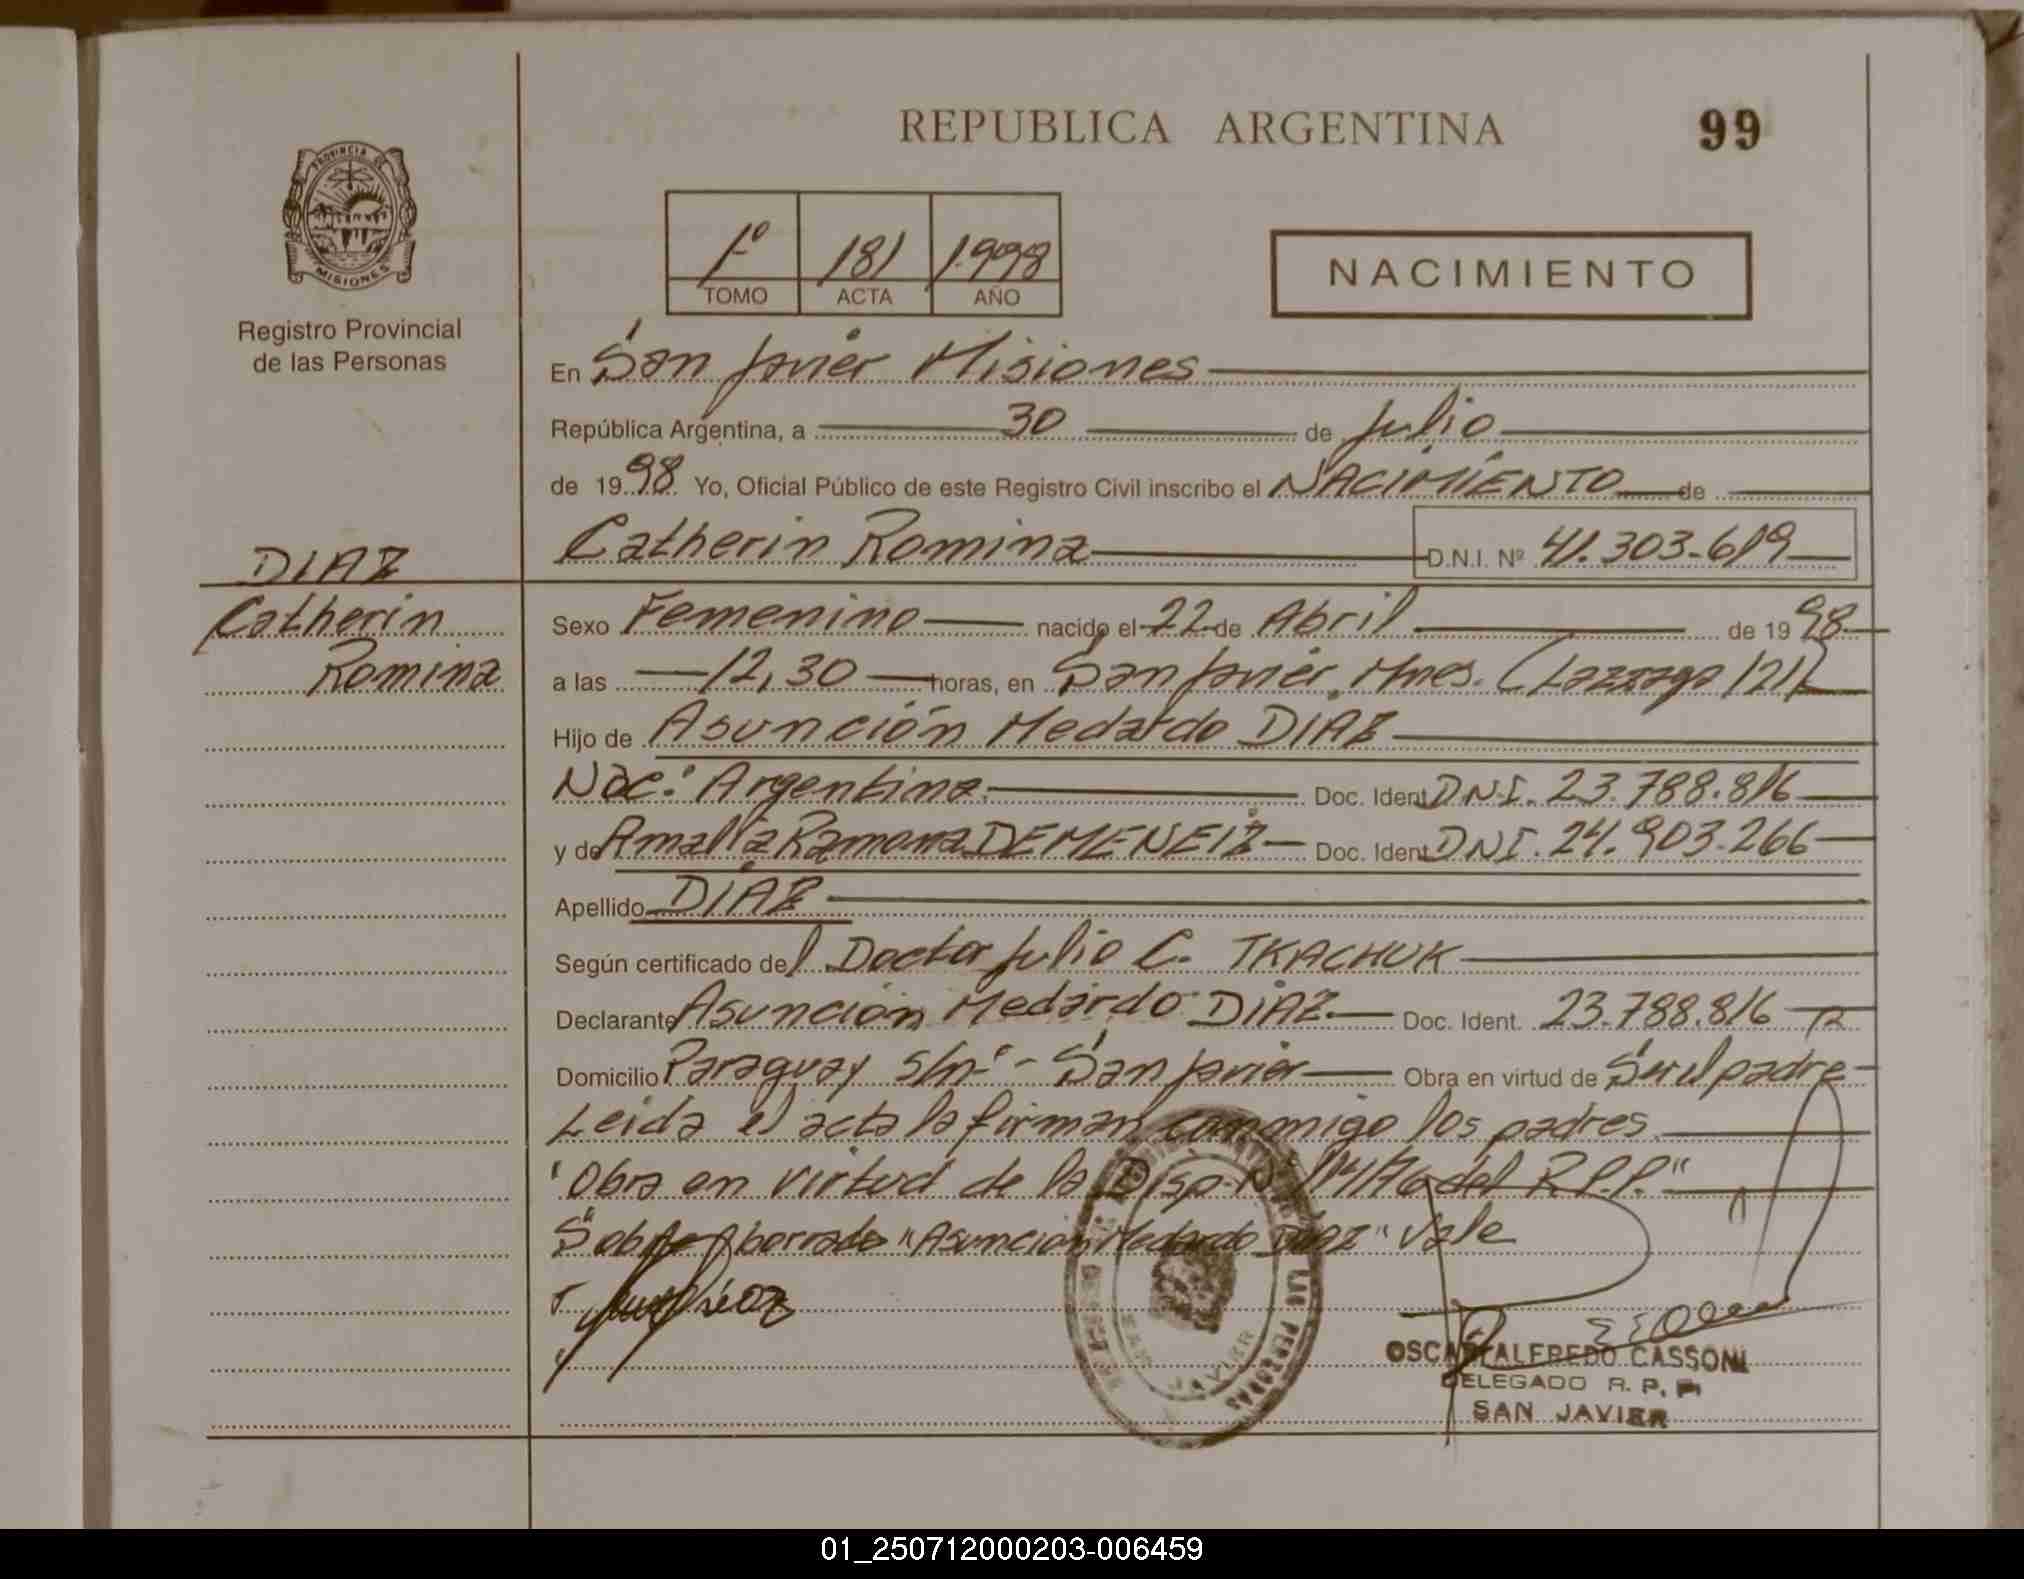 REPUBLICA ARGENTINA
99
PROVINCIA DE
MISIONES
Registro Provincial
de las Personas
1º 181 1.998
TOMO ACTA AÑO
NACIMIENTO
En San Javier Misiones
República Argentina, a 30 de Julio
de 1998 Yo, Oficial Público de este Registro Civil inscribo el NACIMIENTO de
DIAZ
Catherin Romina D.N.I. Nº 41.303.619
Catherin
Romina
Sexo Femenino nacido el 22 de Abril de 1998
a las 12,30 horas, en San Javier, Mnes. (Lazzaga 121)
Hijo de Asunción Medardo DIAZ
Nac: Argentina. Doc. Ident. DNI. 23.788.816
y de Amalia Ramona DEMENEIZ Doc. Ident. DNI. 24.903.266
Apellido DIAZ
Según certificado del Doctor Julio C. TKACHUK
Declarante Asunción Medardo DIAZ Doc. Ident. 23.788.816
Domicilio Paraguay s/nº - San Javier Obra en virtud de Ser el padre
Leida el acta la firman conmigo los padres
"Obra en virtud de la Disp. Nº 14/76 del R.P.P."
Sobre borrado "Asunción Medardo Diaz" Vale
OSCAR ALFREDO CASSONI
DELEGADO R. P. P.
SAN JAVIER
LAS PERSONAS
SAN JAVIER
01_250712000203-006459